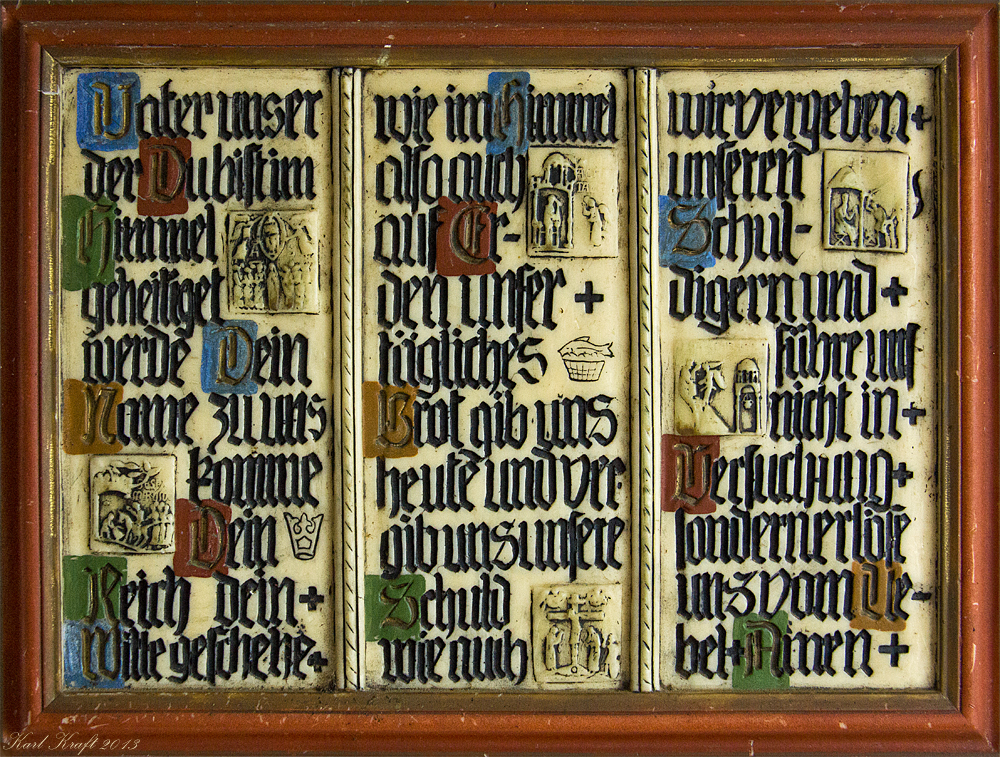 Vater unser
der Du bist im
Himmel
geheiliget
werde Dein
Name zu uns
komme
Dein
Reich dein +
Wille geschehe +
wie im Himmel
also auch
auf Er-
den unser +
tägliches
Brot gib uns
heute und ver-
gib uns unsere
Schuld
wie auch
wir vergeben +
unseren
Schul-
digern und +
führe uns
nicht in +
Versuchung +
sondern erlöse
uns vom Ue-
bel + Amen +
Karl Kraft 2013